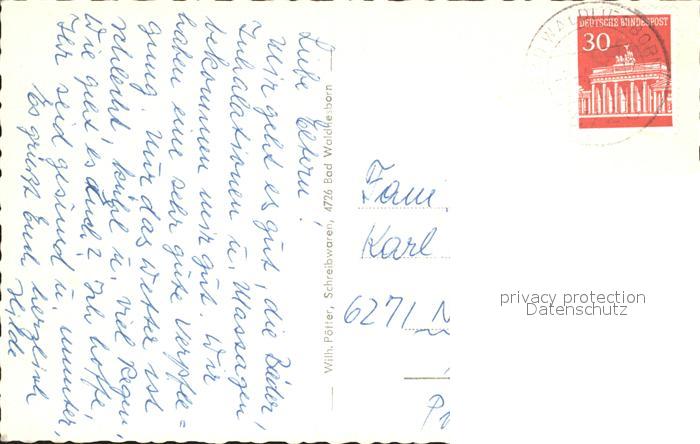 Liebe Eltern!
Mir geht es gut, die Bäder,
Inhalationen u. Massagen
bekommen mir gut. Wir
haben eine sehr gute Verpfle=
gung. Nur das Wetter ist
schlecht, kühl u. viel Regen,
Wie geht es Euch? Ich hoffe,
Ihr seid gesund u. munter,
Es grüßt Euch herzlich
Heide
Wilh. Pötter, Schreibwaren, 4726 Bad Waldliesborn
DEUTSCHE BUNDESPOST
30
Fami
Karl
6271 N
privacy protection
Datenschutz